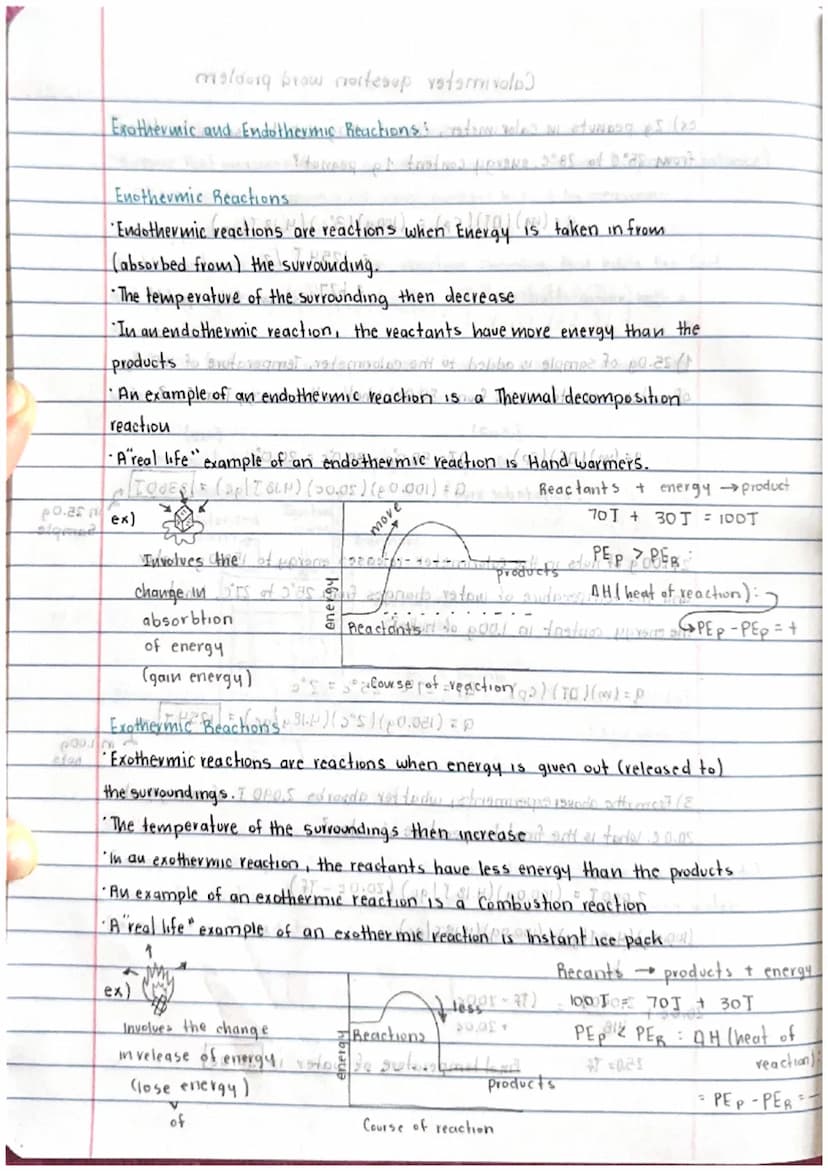 Exothermic and Endothermic Reactions:
Enothermic Reactions
·Endothermic reactions are reactions when Energy is taken in from
(absorbed from) the surrounding.
·The temperature of the surrounding then decrease
·In an endothermic reaction, the reactants have more energy than the
products
·An example of an endothermic reaction is a Thermal decomposition
reaction
·A "real life" example of an endothermic reaction is Hand warmers.
Reactants + energy → product
ex)
70J + 30J = 100J
more
Involves the
change in
absorbtion
of energy
(gain energy)
energy
products
Reactants
Course of reaction
PEp > PER :
ΔH (heat of reaction):
↪PEp - PEp = +
Exothermic Reactions
·Exothermic reactions are reactions when energy is given out (released to)
the surroundings.
·The temperature of the surroundings then increase
·In an exothermic reaction, the reactants have less energy than the products
·An example of an exothermic reaction is a Combustion reaction
·A "real life" example of an exothermic reaction is Instant ice pack
Recants → products + energy
ex)
100J = 70J + 30J
less
Involves the change
in release of energy
(lose energy)
of
energy
Reactions
products
Course of reaction
PEp < PER : ΔH (heat of
reaction):
= PEp - PER = -